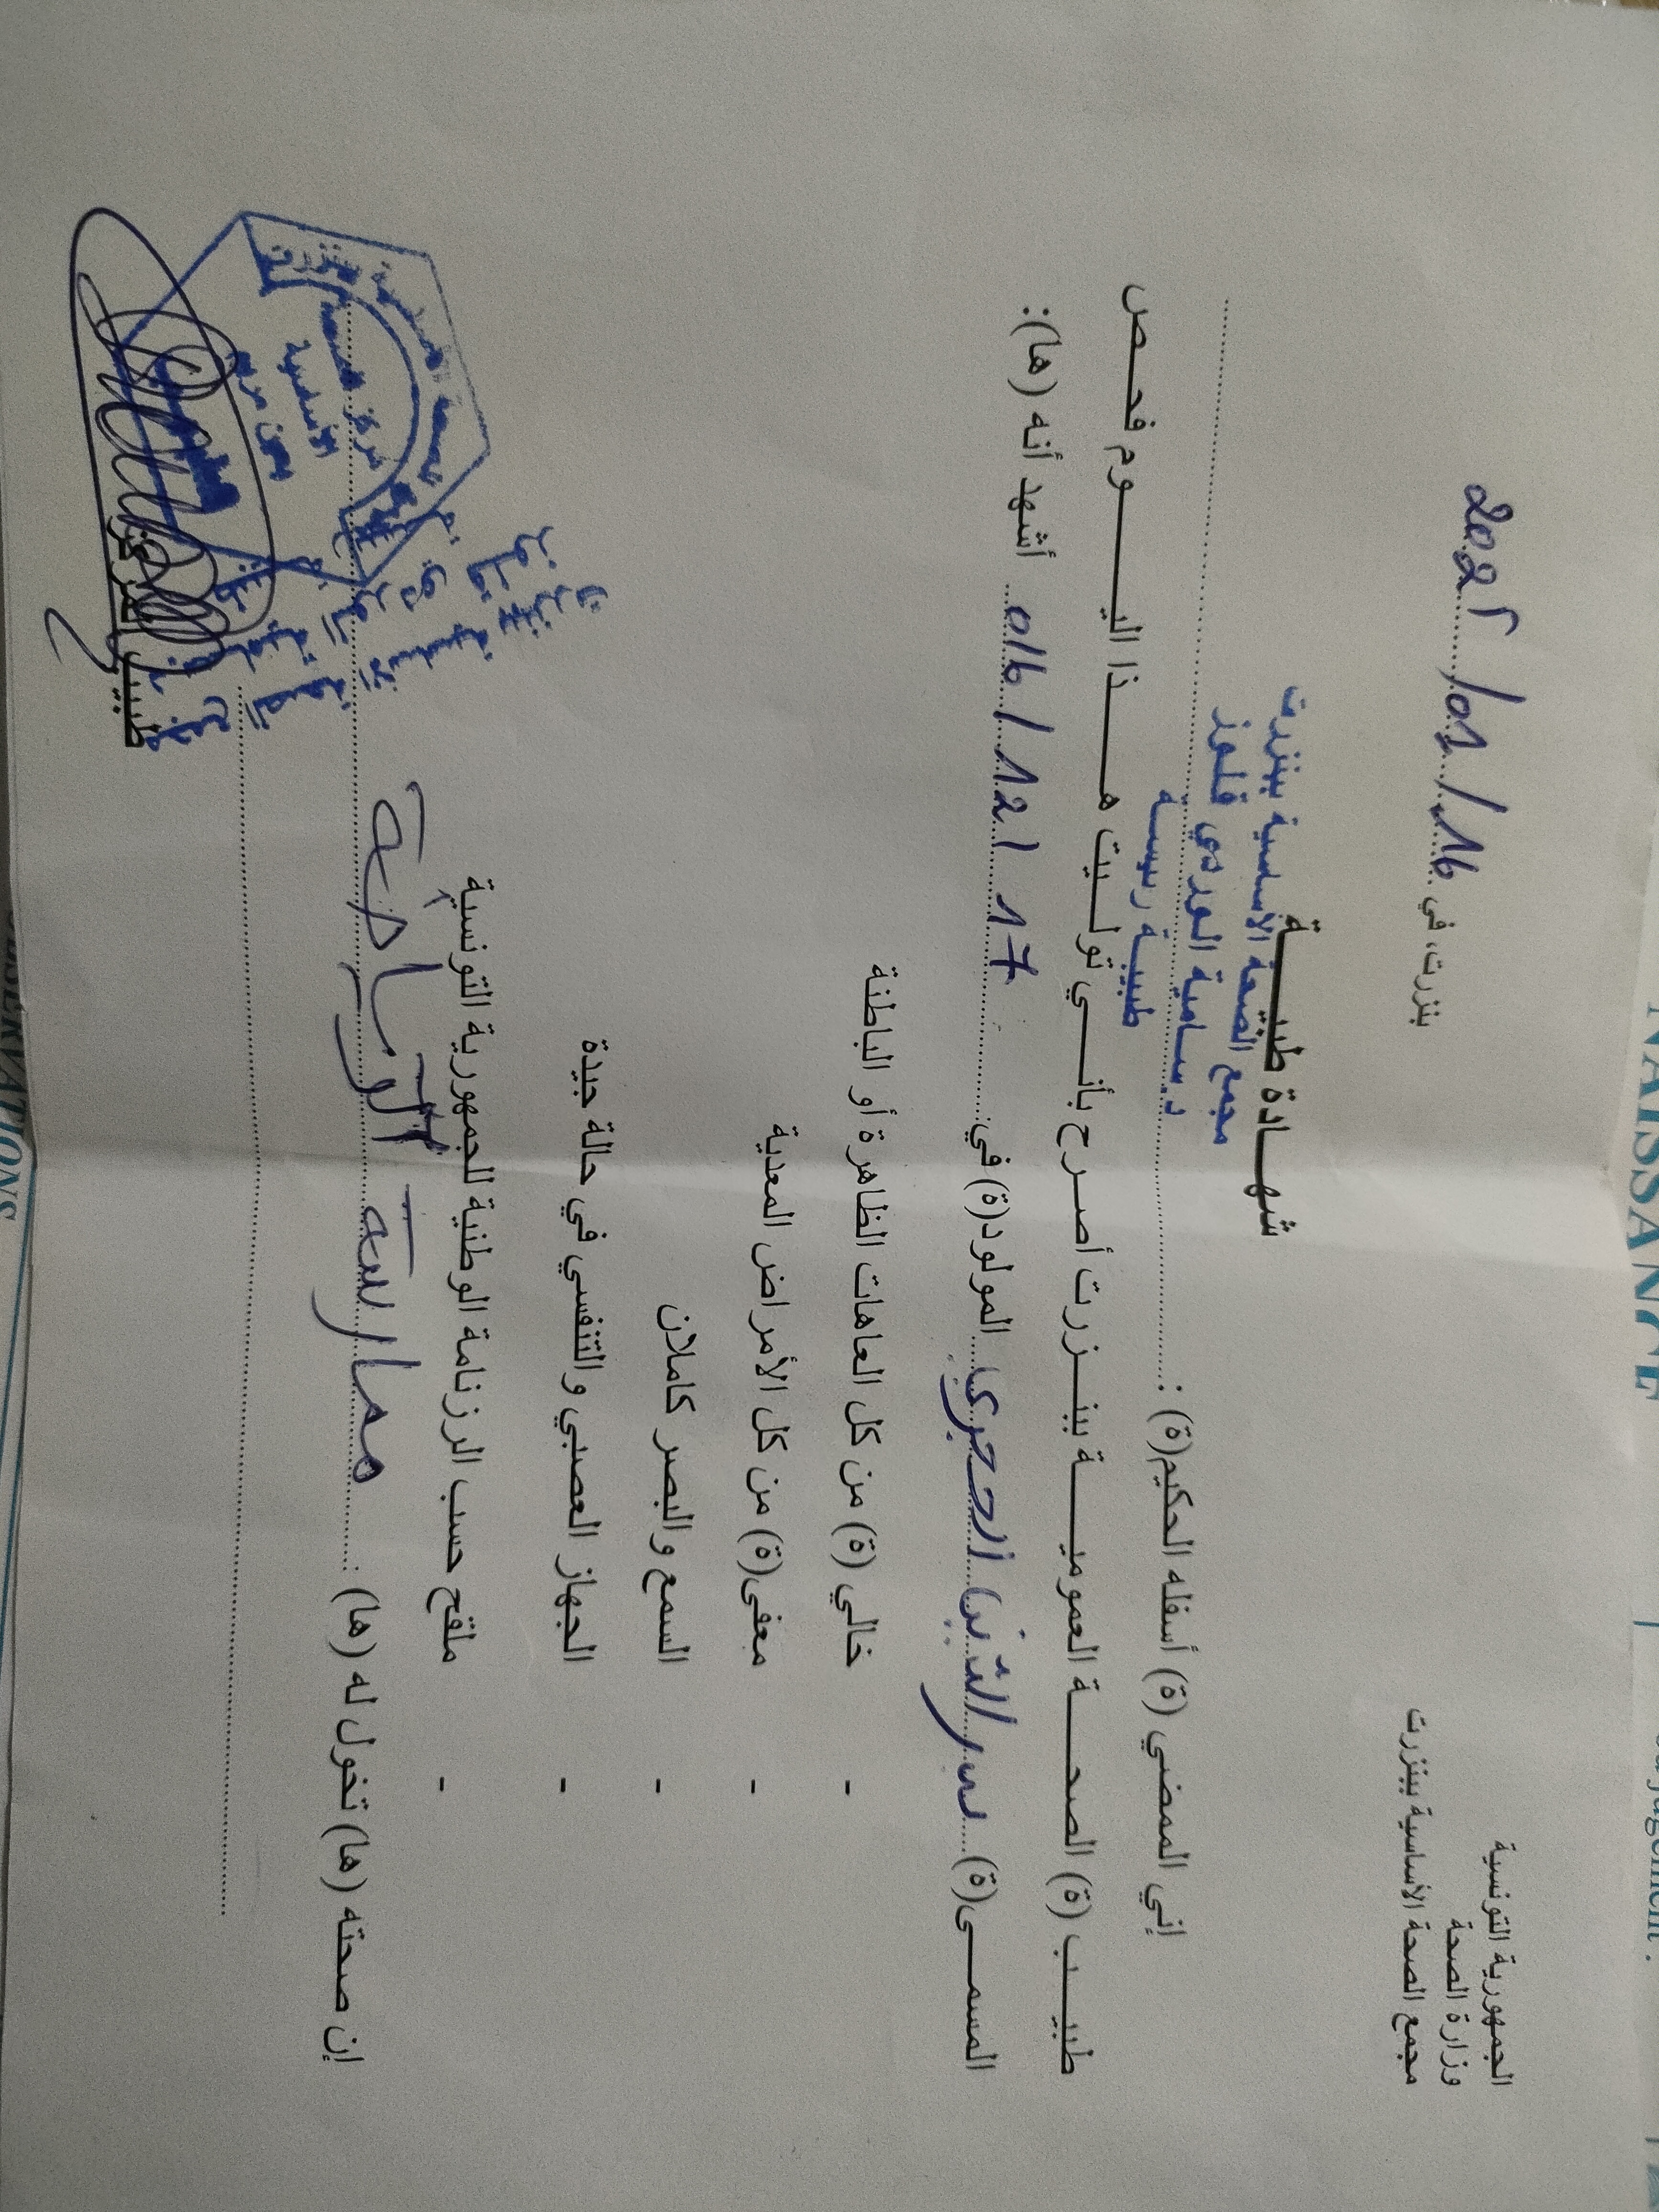 الجمهورية التونسية
وزارة الصحة
مجمع الصحة الأساسية ببنزرت
بنزرت، في 16/01/2025
شهادة طبية
مجمع الصحة الأساسية ببنزرت
د. سامية الوردي قلوز
طبيبة رئيسة
إني الممضي (ة) أسفله الحكيم(ة) :
طبيب (ة) الصحة العمومية ببنزرت أصرح بأنني توليت هذا اليوم فحص
المسمى(ة) المولود(ة) في: 17/12/ أشهد أنه (ها):
- خالي (ة) من كل العاهات الظاهرة أو الباطنة
- معفى(ة) من كل الأمراض المعدية
- السمع والبصر كاملان
- الجهاز العصبي والتنفسي في حالة جيدة
- ملقح حسب الرزنامة الوطنية للجمهورية التونسية
إن صحته (ها) تخول له (ها) : ممارسة الرياضة
مركز الصحة
الأساسية
طبيب المركز
NAISSANCE
OBSERVATIONS